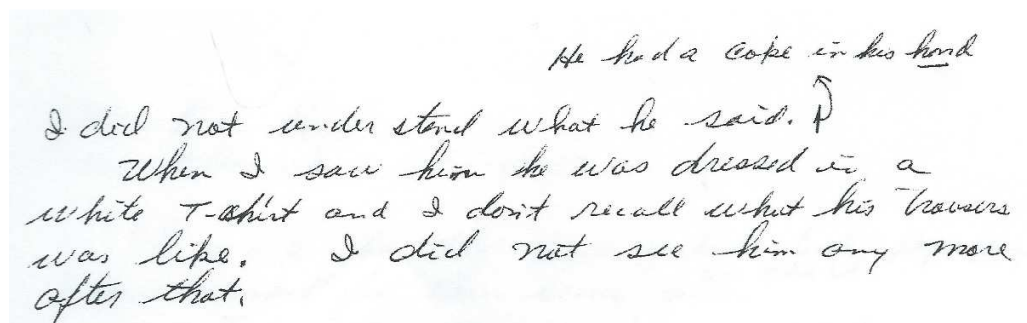 He had a coke in his hand
I did not under stand what he said.
When I saw him he was dressed in a
white T-shirt and I don't recall what his Trousers
was like. I did not see him any more
after that.